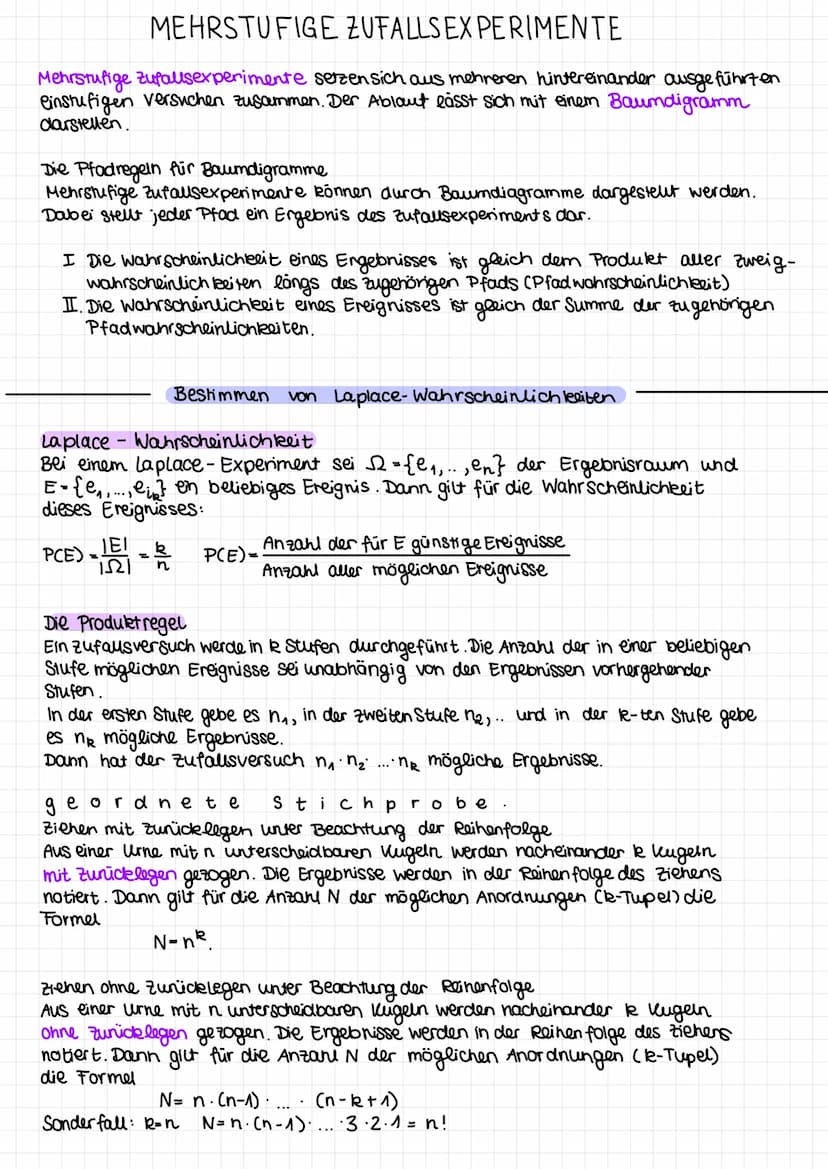 MEHRSTUFIGE ZUFALLSEXPERIMENTE
Mehrstufige Zufallsexperimente setzen sich aus mehreren hintereinander ausgeführten
einstufigen Versuchen zusammen. Der Ablauf lässt sich mit einem Baumdigramm
darstellen.
Die Pfadregeln für Baumdigramme
Mehrstufige Zufallsexperimente können durch Baumdiagramme dargestellt werden.
Dabei stellt jeder Pfad ein Ergebnis des Zufallsexperiments dar.
I Die Wahrscheinlichkeit eines Ergebnisses ist gleich dem Produkt aller Zweig-
wahrscheinlichkeiten längs des zugehörigen Pfads (Pfadwahrscheinlichkeit)
II. Die Wahrscheinlichkeit eines Ereignisses ist gleich der Summe der zugehörigen
Pfadwahrscheinlichkeiten.
Bestimmen von Laplace-Wahrscheinlichkeiten
Laplace - Wahrscheinlichkeit
Bei einem Laplace-Experiment sei Ω={e₁,..,eₙ} der Ergebnisraum und
E={e₁,...,eᵢₖ} en beliebiges Ereignis. Dann gilt für die Wahrscheinlichkeit
dieses Ereignisses:
P(E)=|E|/|Ω| = k/n P(E)= Anzahl der für E günstige Ereignisse / Anzahl aller möglichen Ereignisse
Die Produktregel
Ein Zufallsversuch werde in k Stufen durchgeführt. Die Anzahl der in einer beliebigen
Stufe möglichen Ereignisse sei unabhängig von den Ergebnissen vorhergehender
Stufen.
In der ersten Stufe gebe es n₁, in der zweiten Stufe n₂,.. und in der k-ten Stufe gebe
es nₖ mögliche Ergebnisse.
Dann hat der Zufallsversuch n₁·n₂· ...·nₖ mögliche Ergebnisse.
geordnete Stichprobe.
Ziehen mit Zurücklegen unter Beachtung der Reihenfolge
Aus einer Urne mit n unterscheidbaren Kugeln werden nacheinander k Kugeln
mit Zurücklegen gezogen. Die Ergebnisse werden in der Reihenfolge des Ziehens
notiert. Dann gilt für die Anzahl N der möglichen Anordnungen (k-Tupel) die
Formel
N=nᵏ.
Ziehen ohne Zurücklegen unter Beachtung der Reihenfolge
Aus einer Urne mit n unterscheidbaren Kugeln werden nacheinander k Kugeln
ohne Zurücklegen gezogen. Die Ergebnisse werden in der Reihenfolge des Ziehens
notiert. Dann gilt für die Anzahl N der möglichen Anordnungen (k-Tupel)
die Formel
N= n·(n-1)· ... · (n-k+1)
Sonderfall: k=n N=n·(n-1)· ... ·3·2·1 = n!